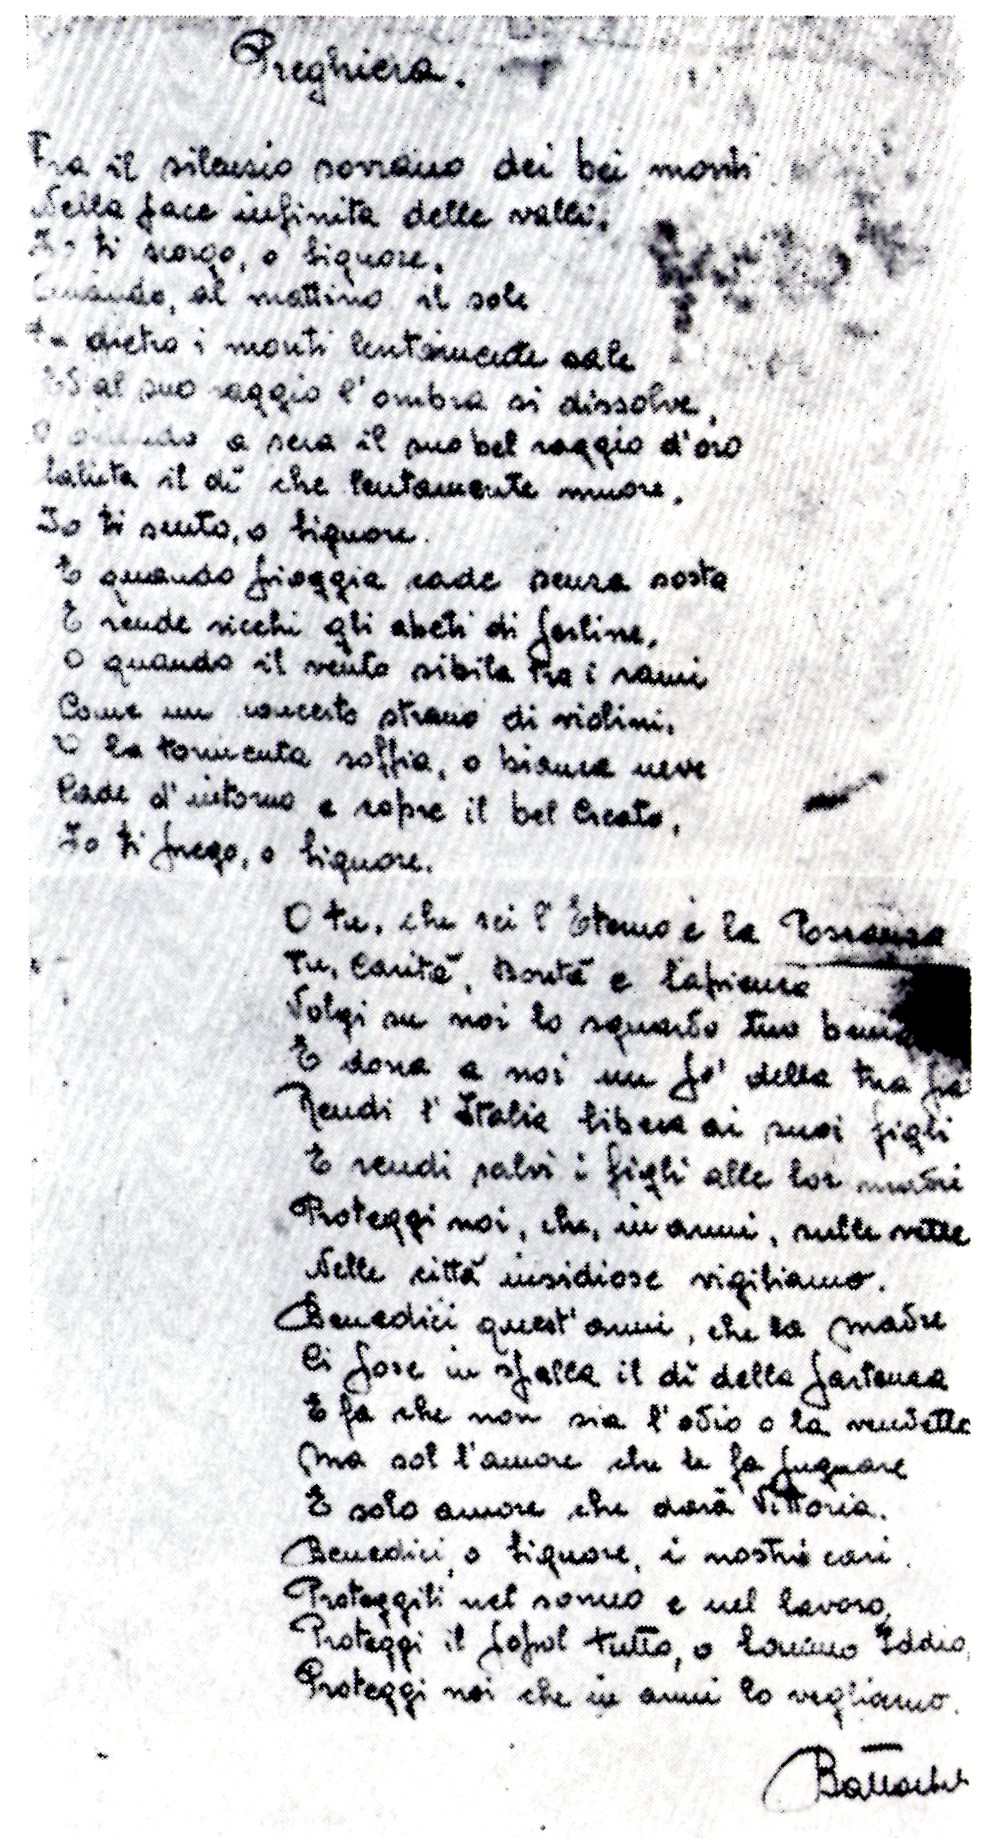 Preghiera.
Fra il silenzio sovrano dei bei monti
Nella pace infinita delle valli,
Io ti scorgo, o Signore,
Quando, al mattino il sole
Da dietro i monti lentamente sale
Ed al suo raggio l'ombra si dissolve,
O quando a sera il suo bel raggio d'oro
Saluta il dì che lentamente muore,
Io ti sento, o Signore.
E quando pioggia cade senza sosta
E rende ricchi gli abeti di perline,
O quando il vento sibila tra i rami
Come un concerto strano di violini,
O la tormenta soffia, o bianca neve
Cade d'intorno e copre il bel Creato,
Io ti prego, o Signore.
O tu, che sei l'Eterno e la Possanza
Tu, Carità, Bontà e Sapienza
Volgi su noi lo sguardo tuo
E dona a noi un po' della tua
Rendi l'Italia libera ai suoi figli
E rendi salvi i figli alle lor madri
Proteggi noi, che, in armi, sulle vette
Nelle città insidiose vigiliamo.
Benedici quest'armi, che la madre
Ci pose in spalla il dì della partenza
E fa che non sia l'odio o la vendetta
Ma sol l'amore che le fa pugnare
E solo amore che darà Vittoria.
Benedici, o Signore, i nostri cari.
Proteggili nel sonno e nel lavoro,
Proteggi il popol tutto, o Sommo Iddio,
Proteggi noi che in armi lo vegliamo.